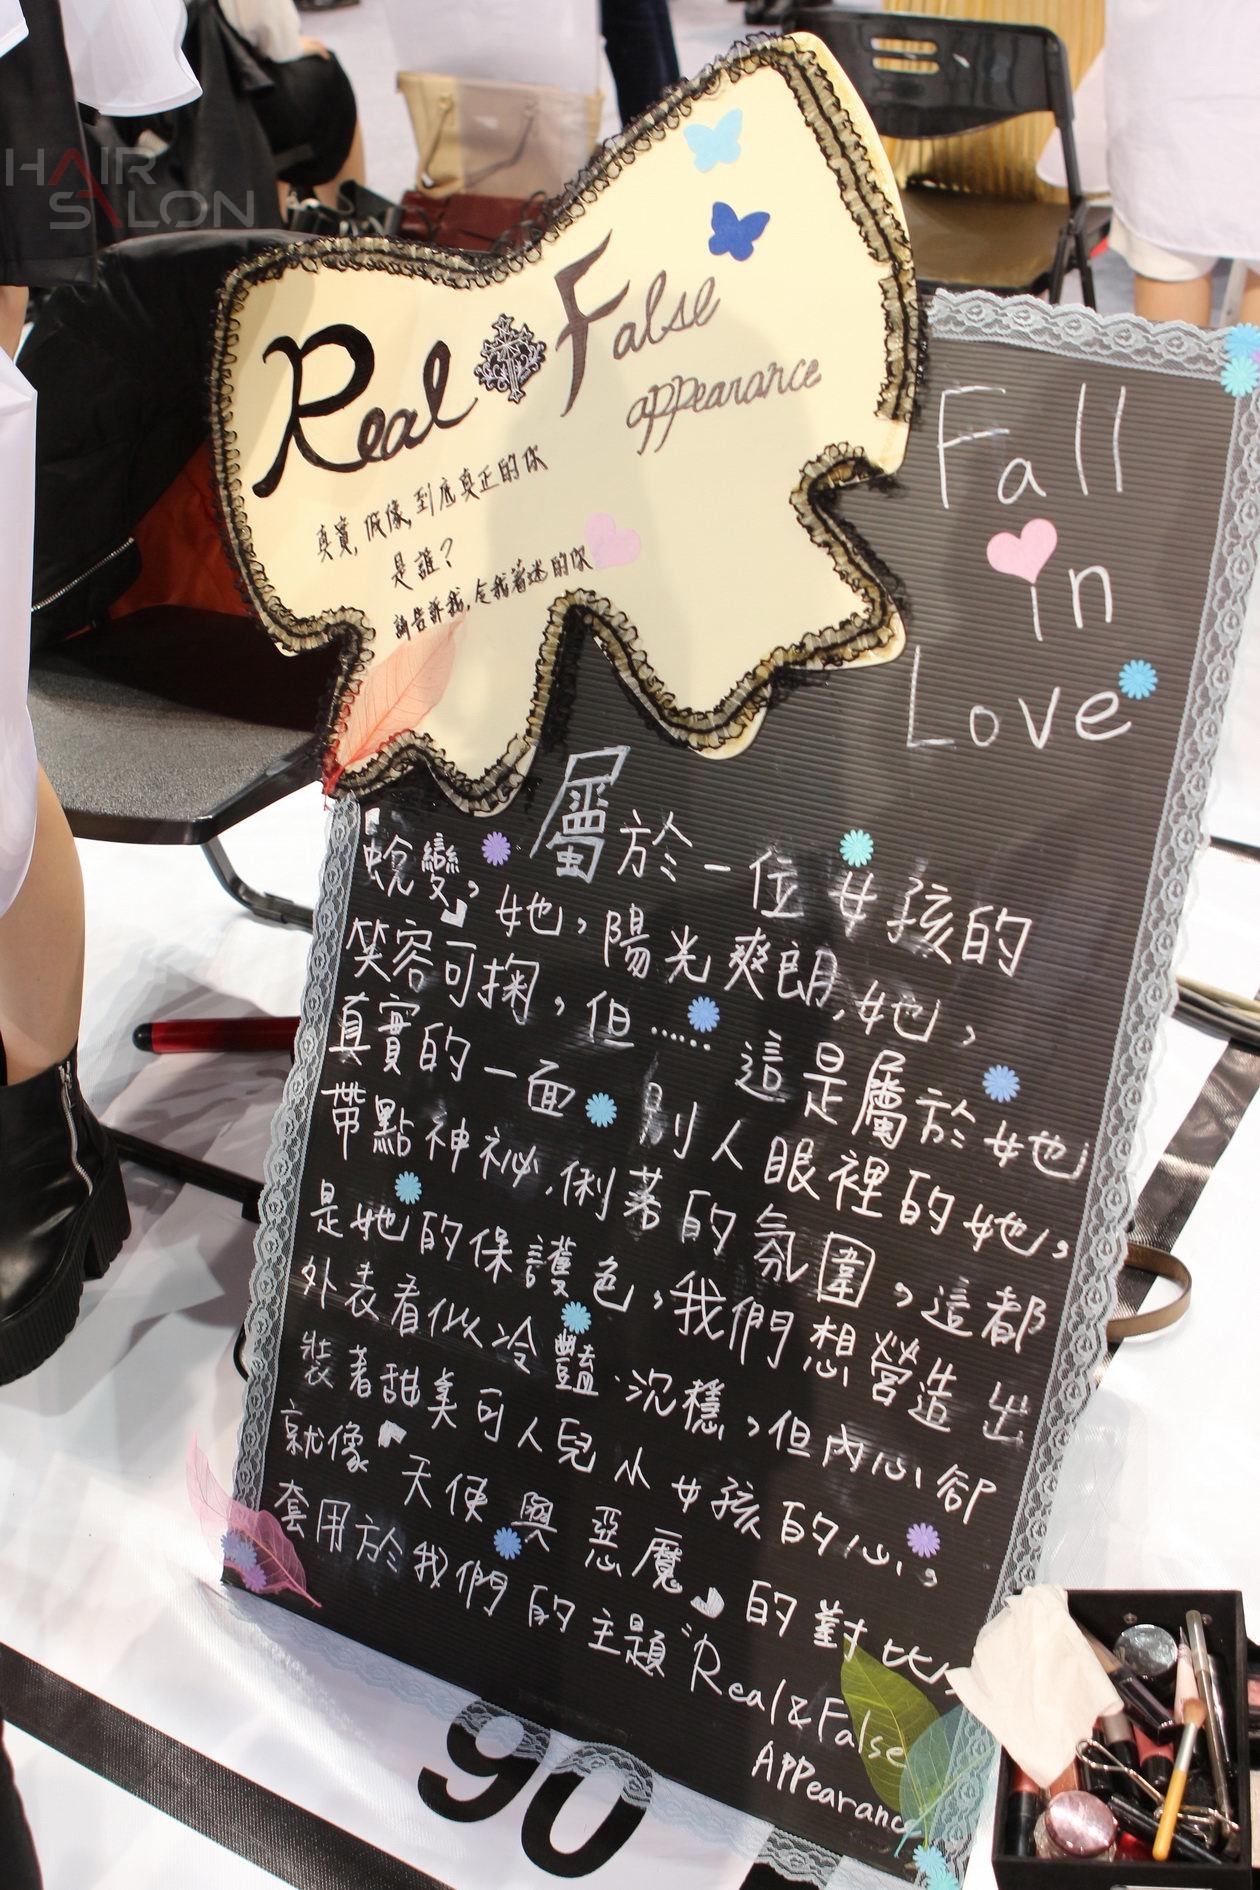 HAIR
SALON
Real False
appearance
真實,假像,到底真正的你
是誰?
請告訴我,令我著迷的你
Fall
in
Love
屬於一位女孩的
「蛻變」,她,陽光爽朗,她,
笑容可掬,但......這是屬於她
真實的一面 別人眼裡的她,
帶點神祕.俐落的氛圍,這都
是她的保護色,我們想營造出
外表看似冷豔.沉穩,但內心卻
裝著甜美可人兒小女孩的心,
就像「天使與惡魔」的對比
套用於我們的主題"Real&False
Appearanc
90